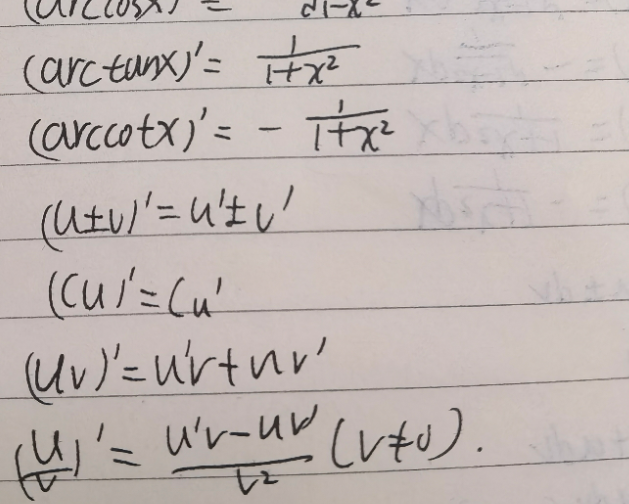 (arccosx)' =
(arctanx)' = 1/(1+x²)
(arccotx)' = - 1/(1+x²)
(u±v)' = u'±v'
(Cu)' = Cu'
(uv)' = u'v+uv'
(u/v)' = (u'v-uv')/v² (v≠0).